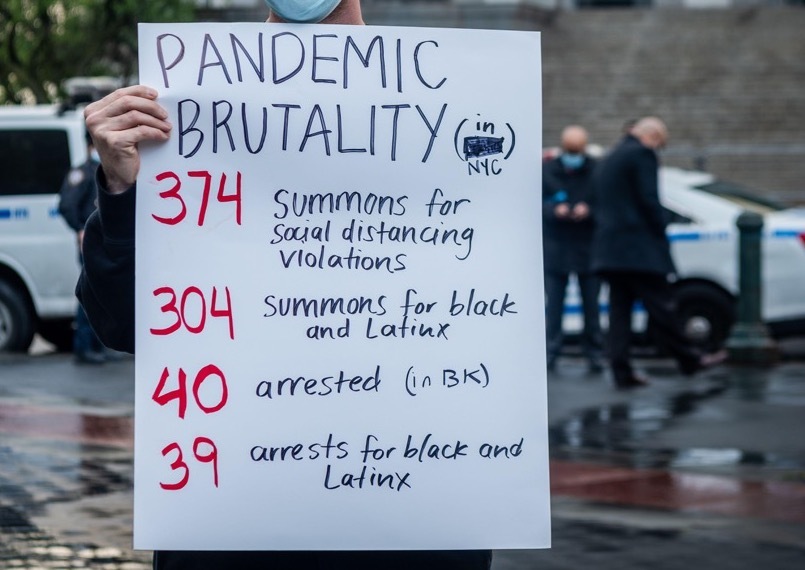 PANDEMIC
BRUTALITY (in
NYC)
374 summons for
social distancing
violations
304 summons for black
and Latinx
40 arrested (in BK)
39 arrests for black and
Latinx